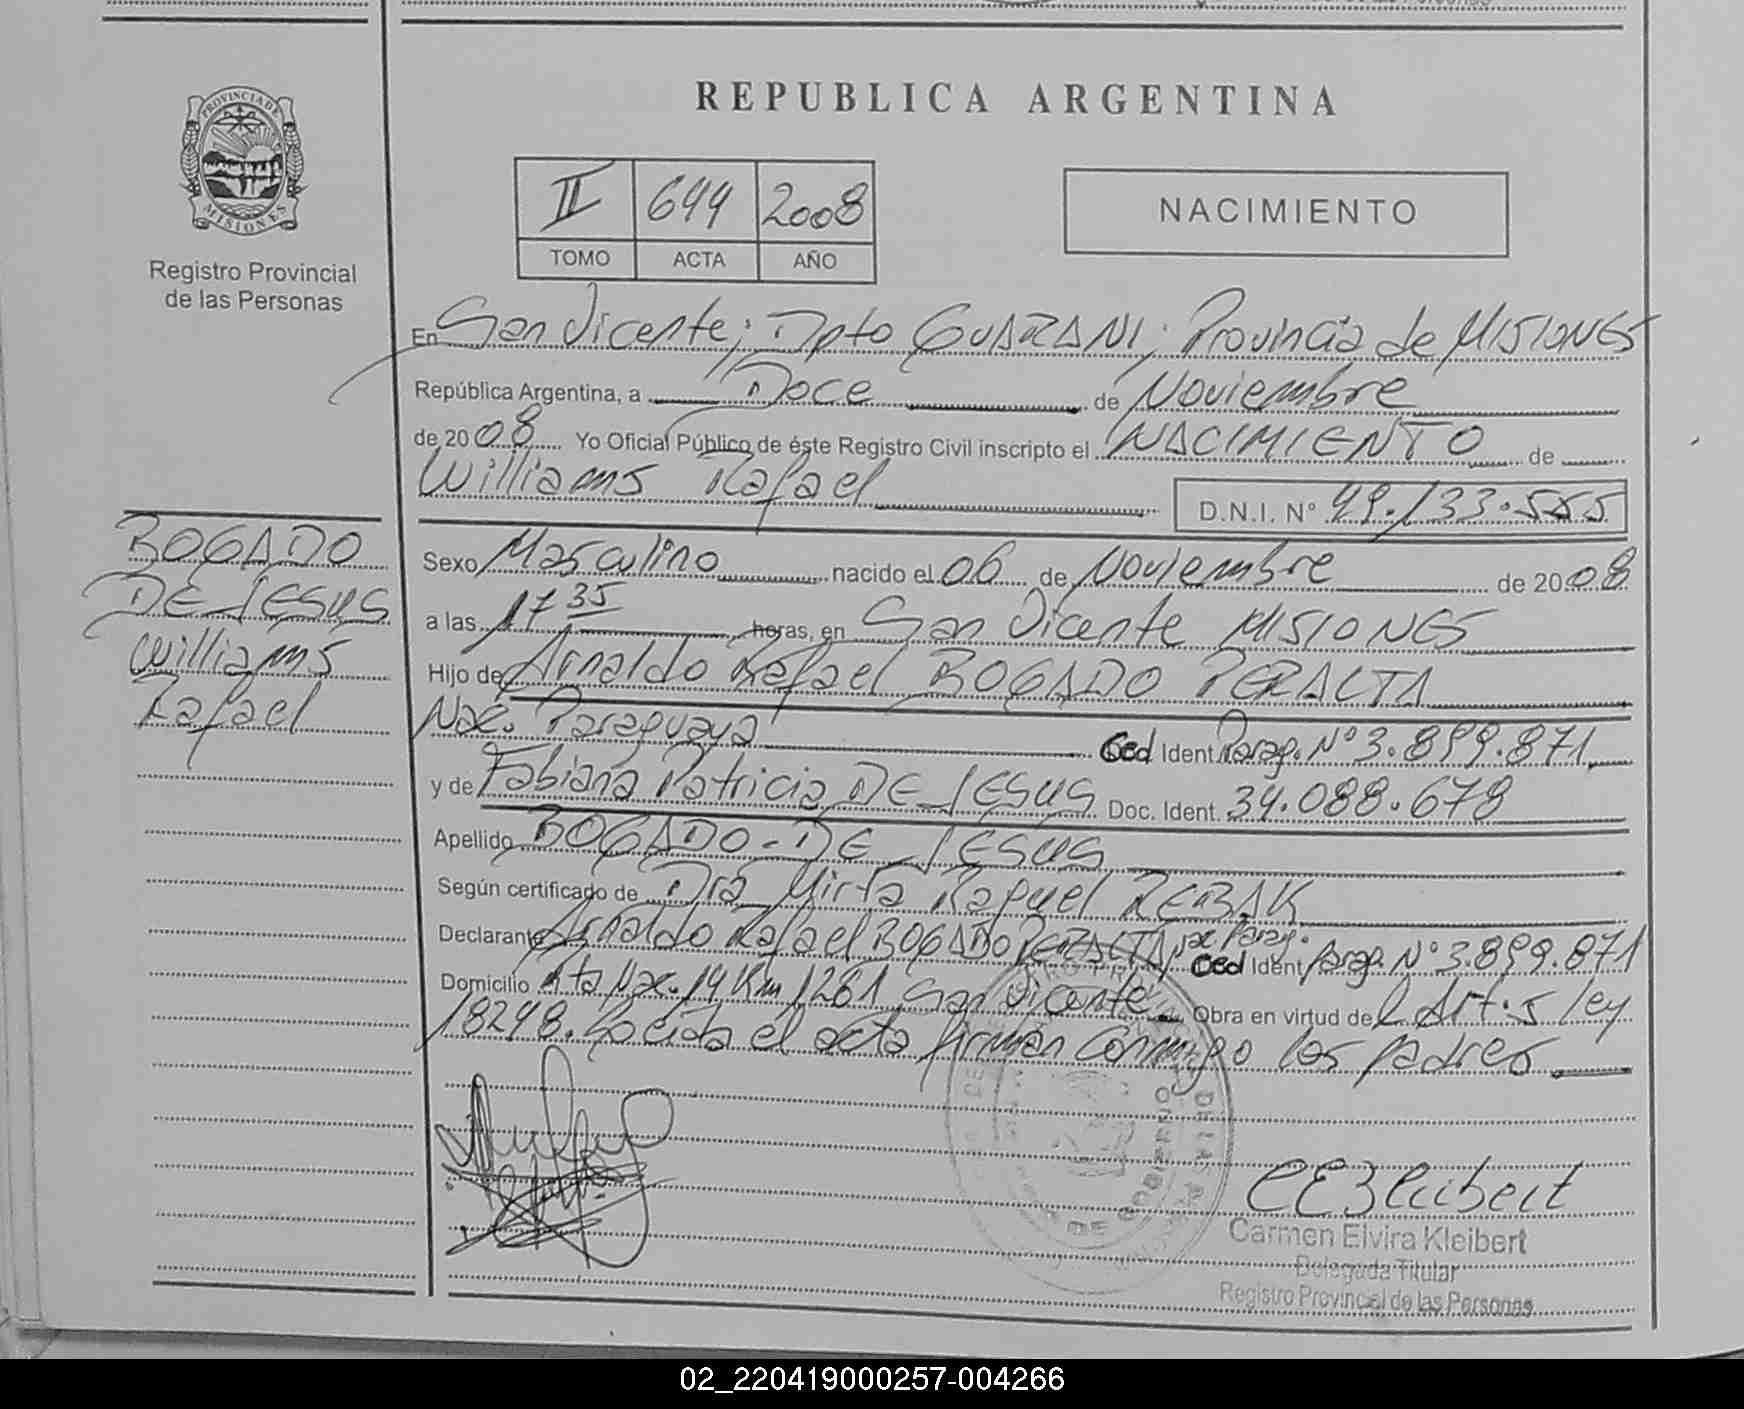 REPUBLICA ARGENTINA
PROVINCIA DE
MISIONES
Registro Provincial
de las Personas
II 644 2008
TOMO ACTA AÑO
NACIMIENTO
En San Vicente; Dpto GUARANI; Provincia de MISIONES
República Argentina, a Doce de Noviembre
de 2008 Yo Oficial Público de éste Registro Civil inscripto el NACIMIENTO de
Williams Rafael D.N.I. N° 49.133.555
BOGADO
DE JESUS
Williams
Rafael
Sexo Masculino nacido el 06 de Noviembre de 2008
a las 17 35 horas, en San Vicente MISIONES
Hijo de Arnaldo Rafael BOGADO PERALTA
Nac. Paraguaya Ced Ident Parag. N° 3.899.871
y de Fabiana Patricia DE JESUS Doc. Ident. 34.088.678
Apellido BOGADO - DE JESUS
Según certificado de Dra Mirta Raquel REBAK
Declarante Arnaldo Rafael BOGADO PERALTA Parag. Ced Ident Parag. N° 3.899.871
Domicilio Rta Nac. 14 Km 1261 San Vicente Obra en virtud de l Art. 5 ley
18248. Leída el acta firman conmigo los padres
CEKleibert
Carmen Elvira Kleibert
Delegada Titular
Registro Provincial de las Personas
02_220419000257-004266